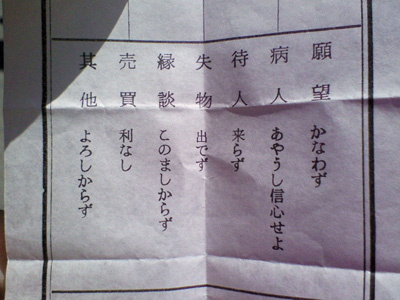 願望 かなわず
病人 あやうし信心せよ
待人 来らず
失物 出でず
縁談 このましからず
売買 利なし
其他 よろしからず